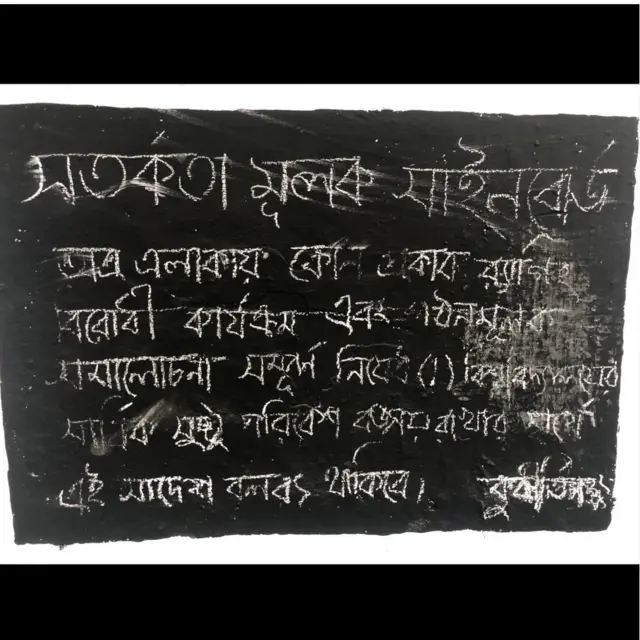 সতর্কতা মূলক সাইনবোর্ড
অত্র এলাকায় কোন প্রকার র‍্যাগিং
বিরোধী কার্যক্রম এবং গঠনমূলক
সমালোচনা সম্পূর্ণ নিষেধ(!)। বিশ্ববিদ্যালয়ের
সার্বিক সুষ্ঠু পরিবেশ বজায় রাখার স্বার্থে
এই আদেশ বলবৎ থাকিবে।